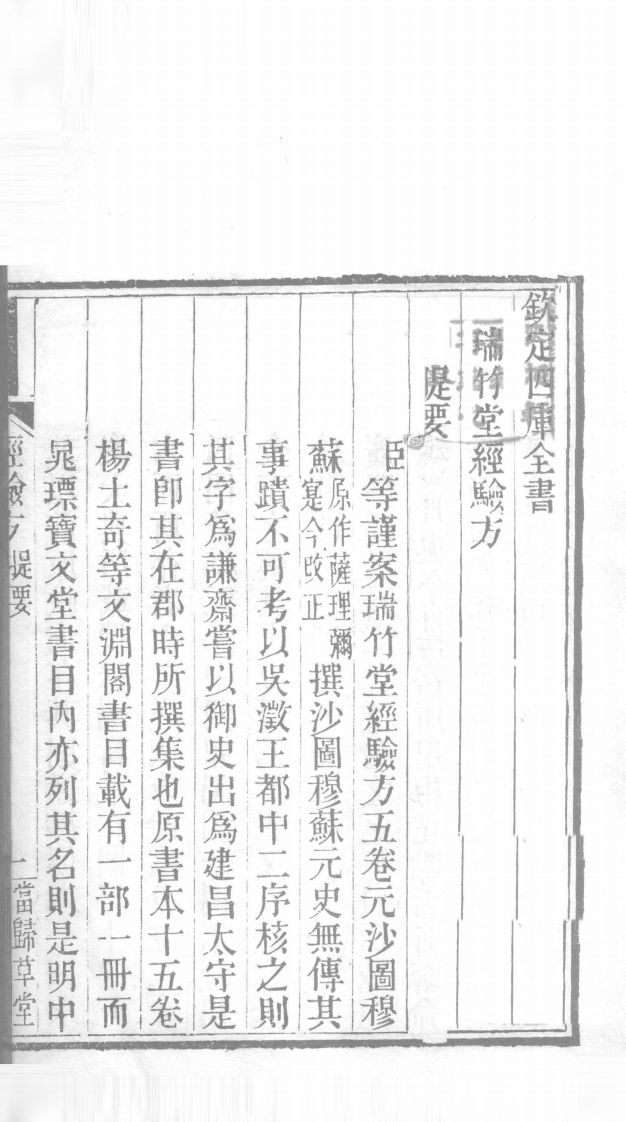 欽定四庫全書
瑞竹堂經驗方
提要
臣等謹案瑞竹堂經驗方五卷元沙圖穆
蘇原作薩理彌寔今改正撰沙圖穆蘇元史無傳其
事蹟不可考以吳澂王都中二序核之則
其字爲謙齋嘗以御史出爲建昌太守是
書卽其在郡時所撰集也原書本十五卷
楊士奇等文淵閣書目載有一部一冊而
晁瑮寶文堂書目內亦列其名則是明中
經驗方 提要 一 當歸草堂